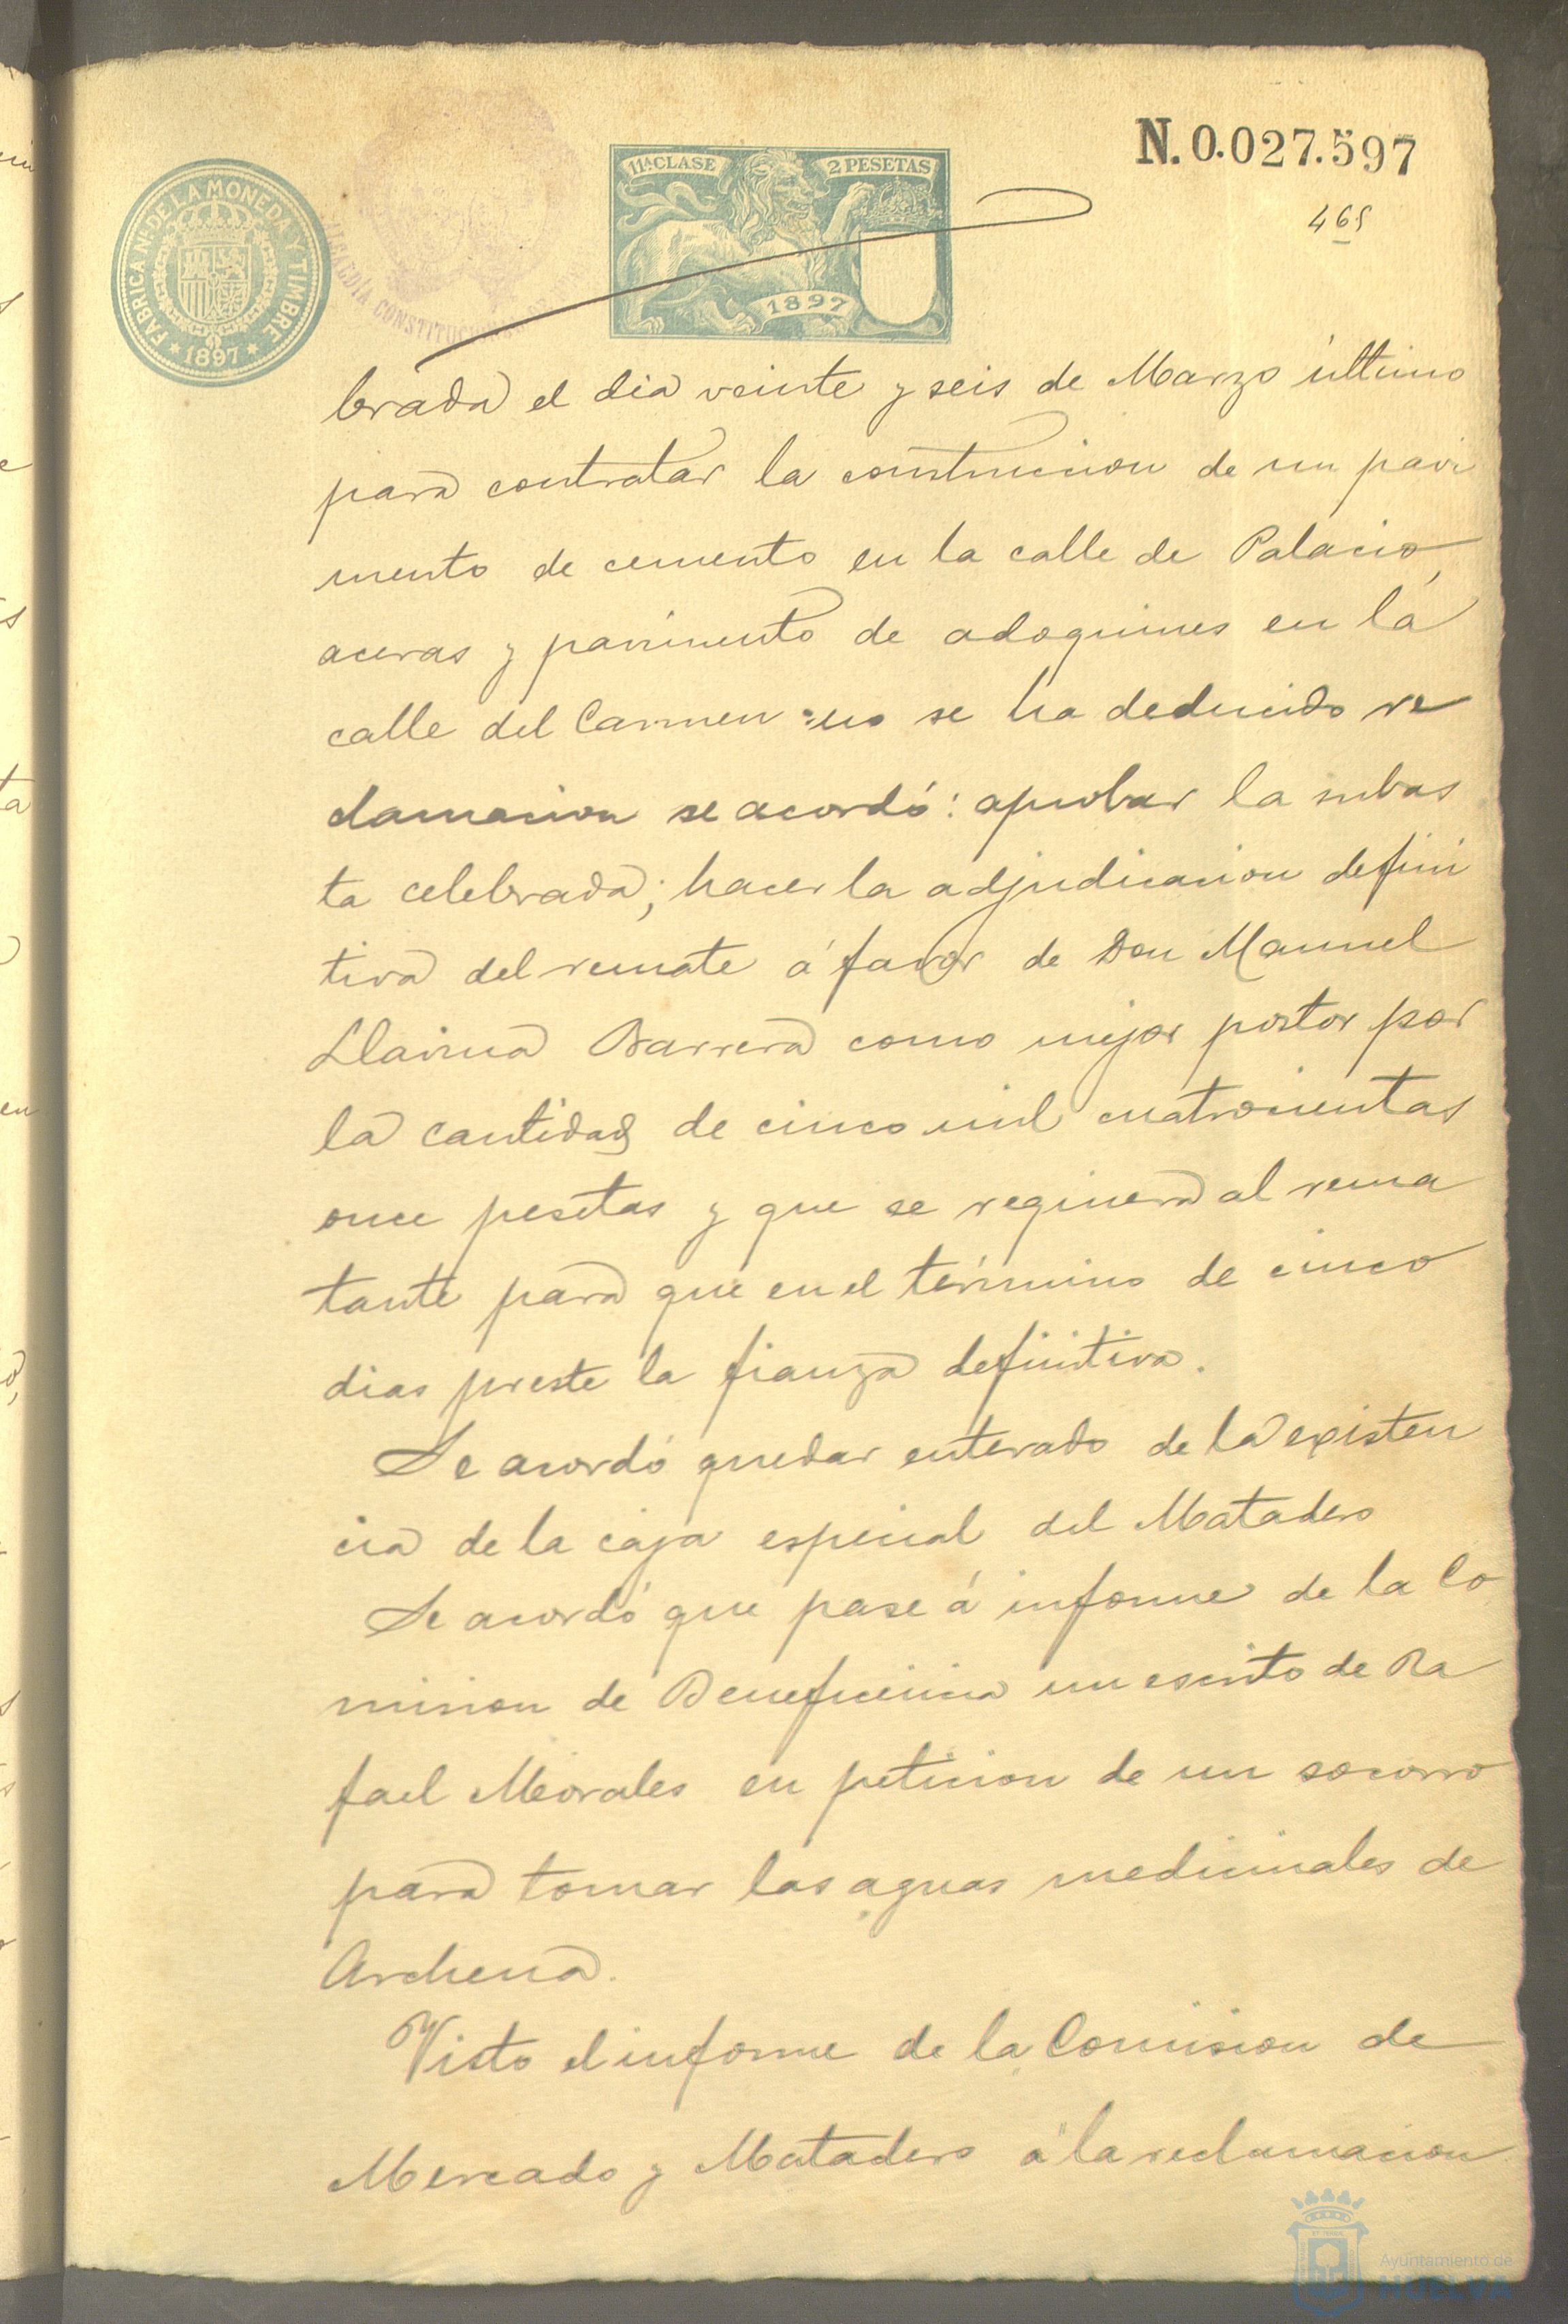 N.0.027.597
11ª CLASE 2 PESETAS
FABRICA Nl. DE LA MONEDA Y TIMBRE
* 1897 *
ALCALDÍA CONSTITUCIONAL
1897
465
brada el dia veinte y seis de Marzo último
para contratar la construccion de un pavi
mento de cemento en la calle de Palacio,
aceras y pavimento de adoquines en la
calle del Carmen: no se ha deducido re
clamacion se acordó: aprobar la subas
ta celebrada; hacer la adjudicacion defini
tiva del remate á favor de Don Manuel
Barrera como mejor postor por
la cantidad de cinco mil cuatrocientas
once pesetas y que se requiera al rema
tante para que en el término de cinco
dias preste la fianza definitiva.
Se acordó quedar enterado de la existen
cia de la caja especial del Matadero
Se acordó que pase á informe de la Co
mision de Beneficencia un escrito de Ra
fael Morales en peticion de un socorro
para tomar las aguas medicinales de
Archena.
Visto el informe de la Comision de
Mercado y Matadero á la reclamacion
Ayuntamiento de
HUELVA